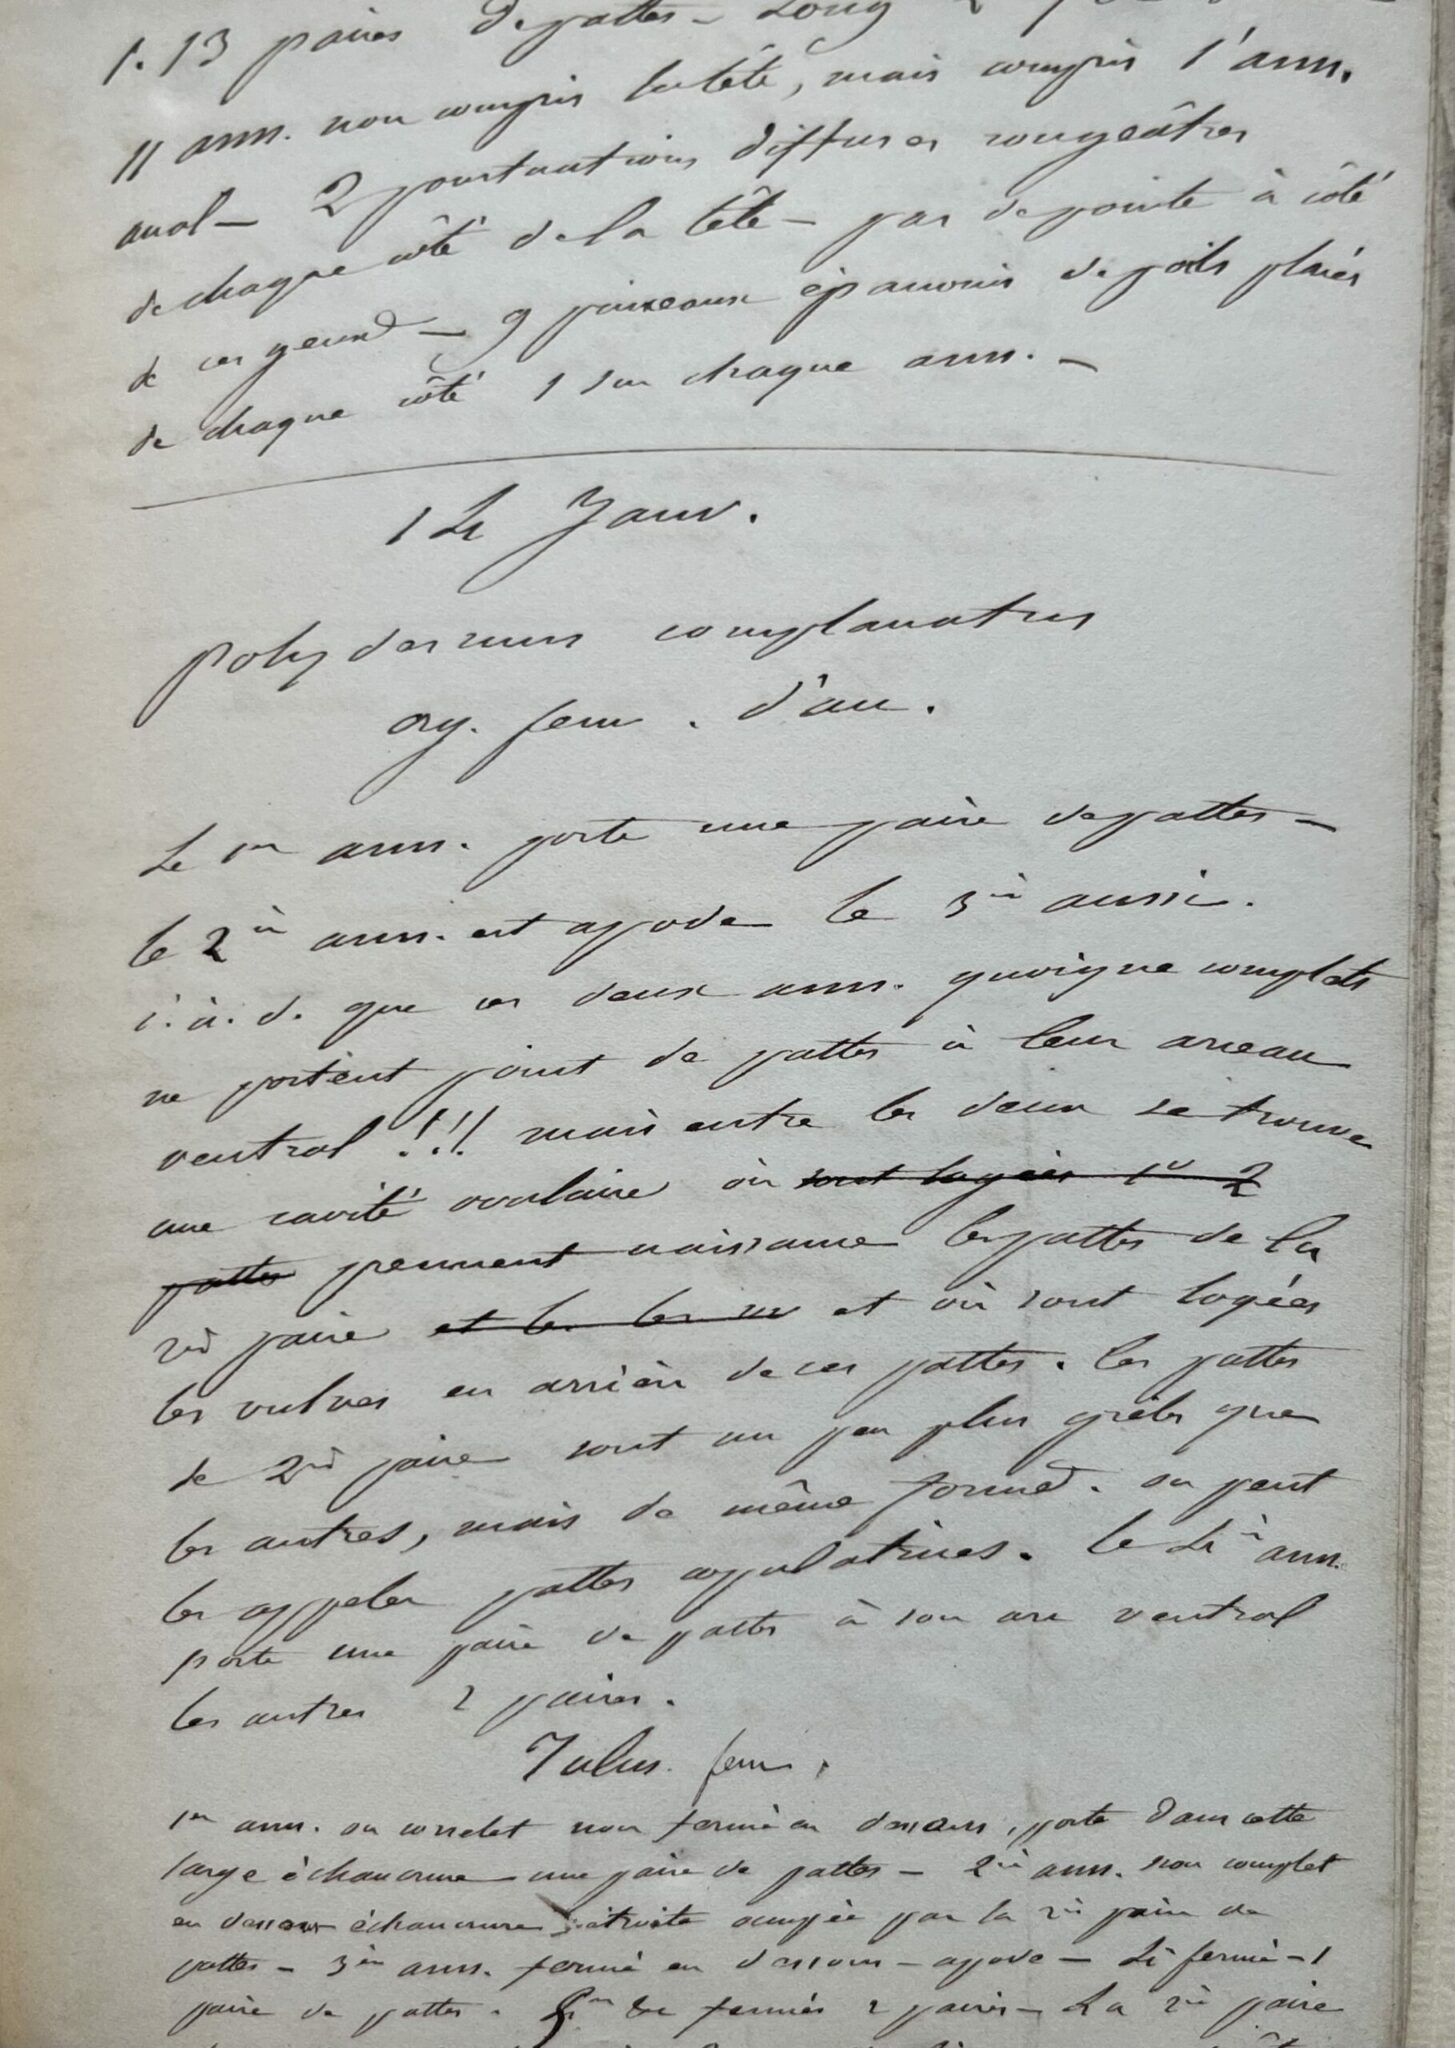 1. 13 paires de pattes – Long 2
11 ann. non compris la tête, mais compris l'ann.
anal – 2 ponctuations diffuses rougeâtres
de chaque côté de la tête – pas de pointe à côté
de ces yeux – 9 faisceaux épanouis de poils placés
de chaque côté 1 sur chaque ann. –
14 Janv.
polydesmus complanatus
org. fem. d'au.
Le 1er ann. porte une paire de pattes –
le 2è ann. est apode le 3è aussi.
c. à. d. que ces deux ann. quoique complets
ne portent point de pattes à leur arceau
ventral !!! mais entre les deux se trouve
une cavité ovalaire où sont logées les 2
pattes prennent naissance les pattes de la
2è paire et les les et où sont logées
les vulves en arrière de ces pattes. les pattes
de 2è paire sont un peu plus grêles que
les autres, mais de même forme. on peut
les appeler pattes copulatrices. le 4è ann.
porte une paire de pattes à son arc ventral
les autres 2 paires.
Iulus. fem.
1er ann. ou corselet non fermé en dessous, porte dans cette
large échancrure une paire de pattes – 2è ann. non complet
en dessous échancrure étroite occupée par la 2è paire de
pattes – 3è ann. fermé en dessous – apode – 4è fermé – 1
paire de pattes. 5è &c fermés 2 paires – La 2è paire